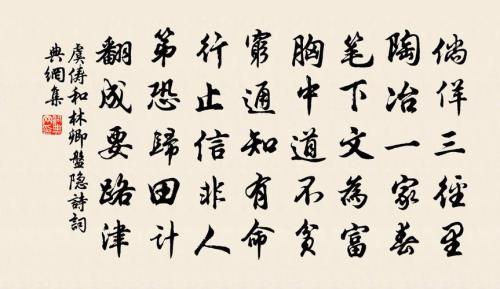 倘佯三徑里
陶冶一家春
笔下文為富
胸中道不貧
窮通知有命
行止信非人
第恐歸田計
翻成要路津
虞俦和林卿盤隐詩詞
典網集